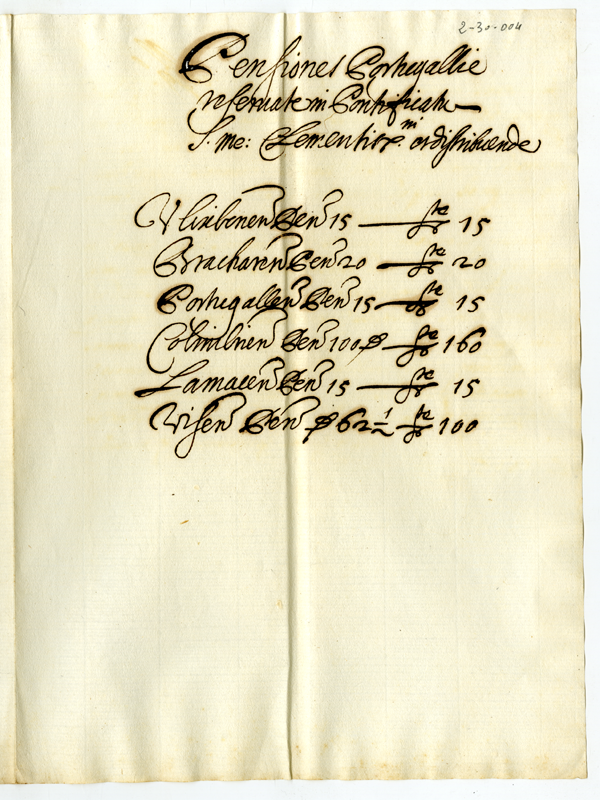 2-30-004
Pensiones Portugallie
reservate in Pontificatu
S. me: Clementis X.mi distribuende
Vlixbonen Pen 15 — 15
Bracharen Pen 20 — 20
Portugallen Pen 15 — 15
Colimbrien Pen 100 — 160
Lamacen Pen 15 — 15
Visen Pen 62 1/2 — 100